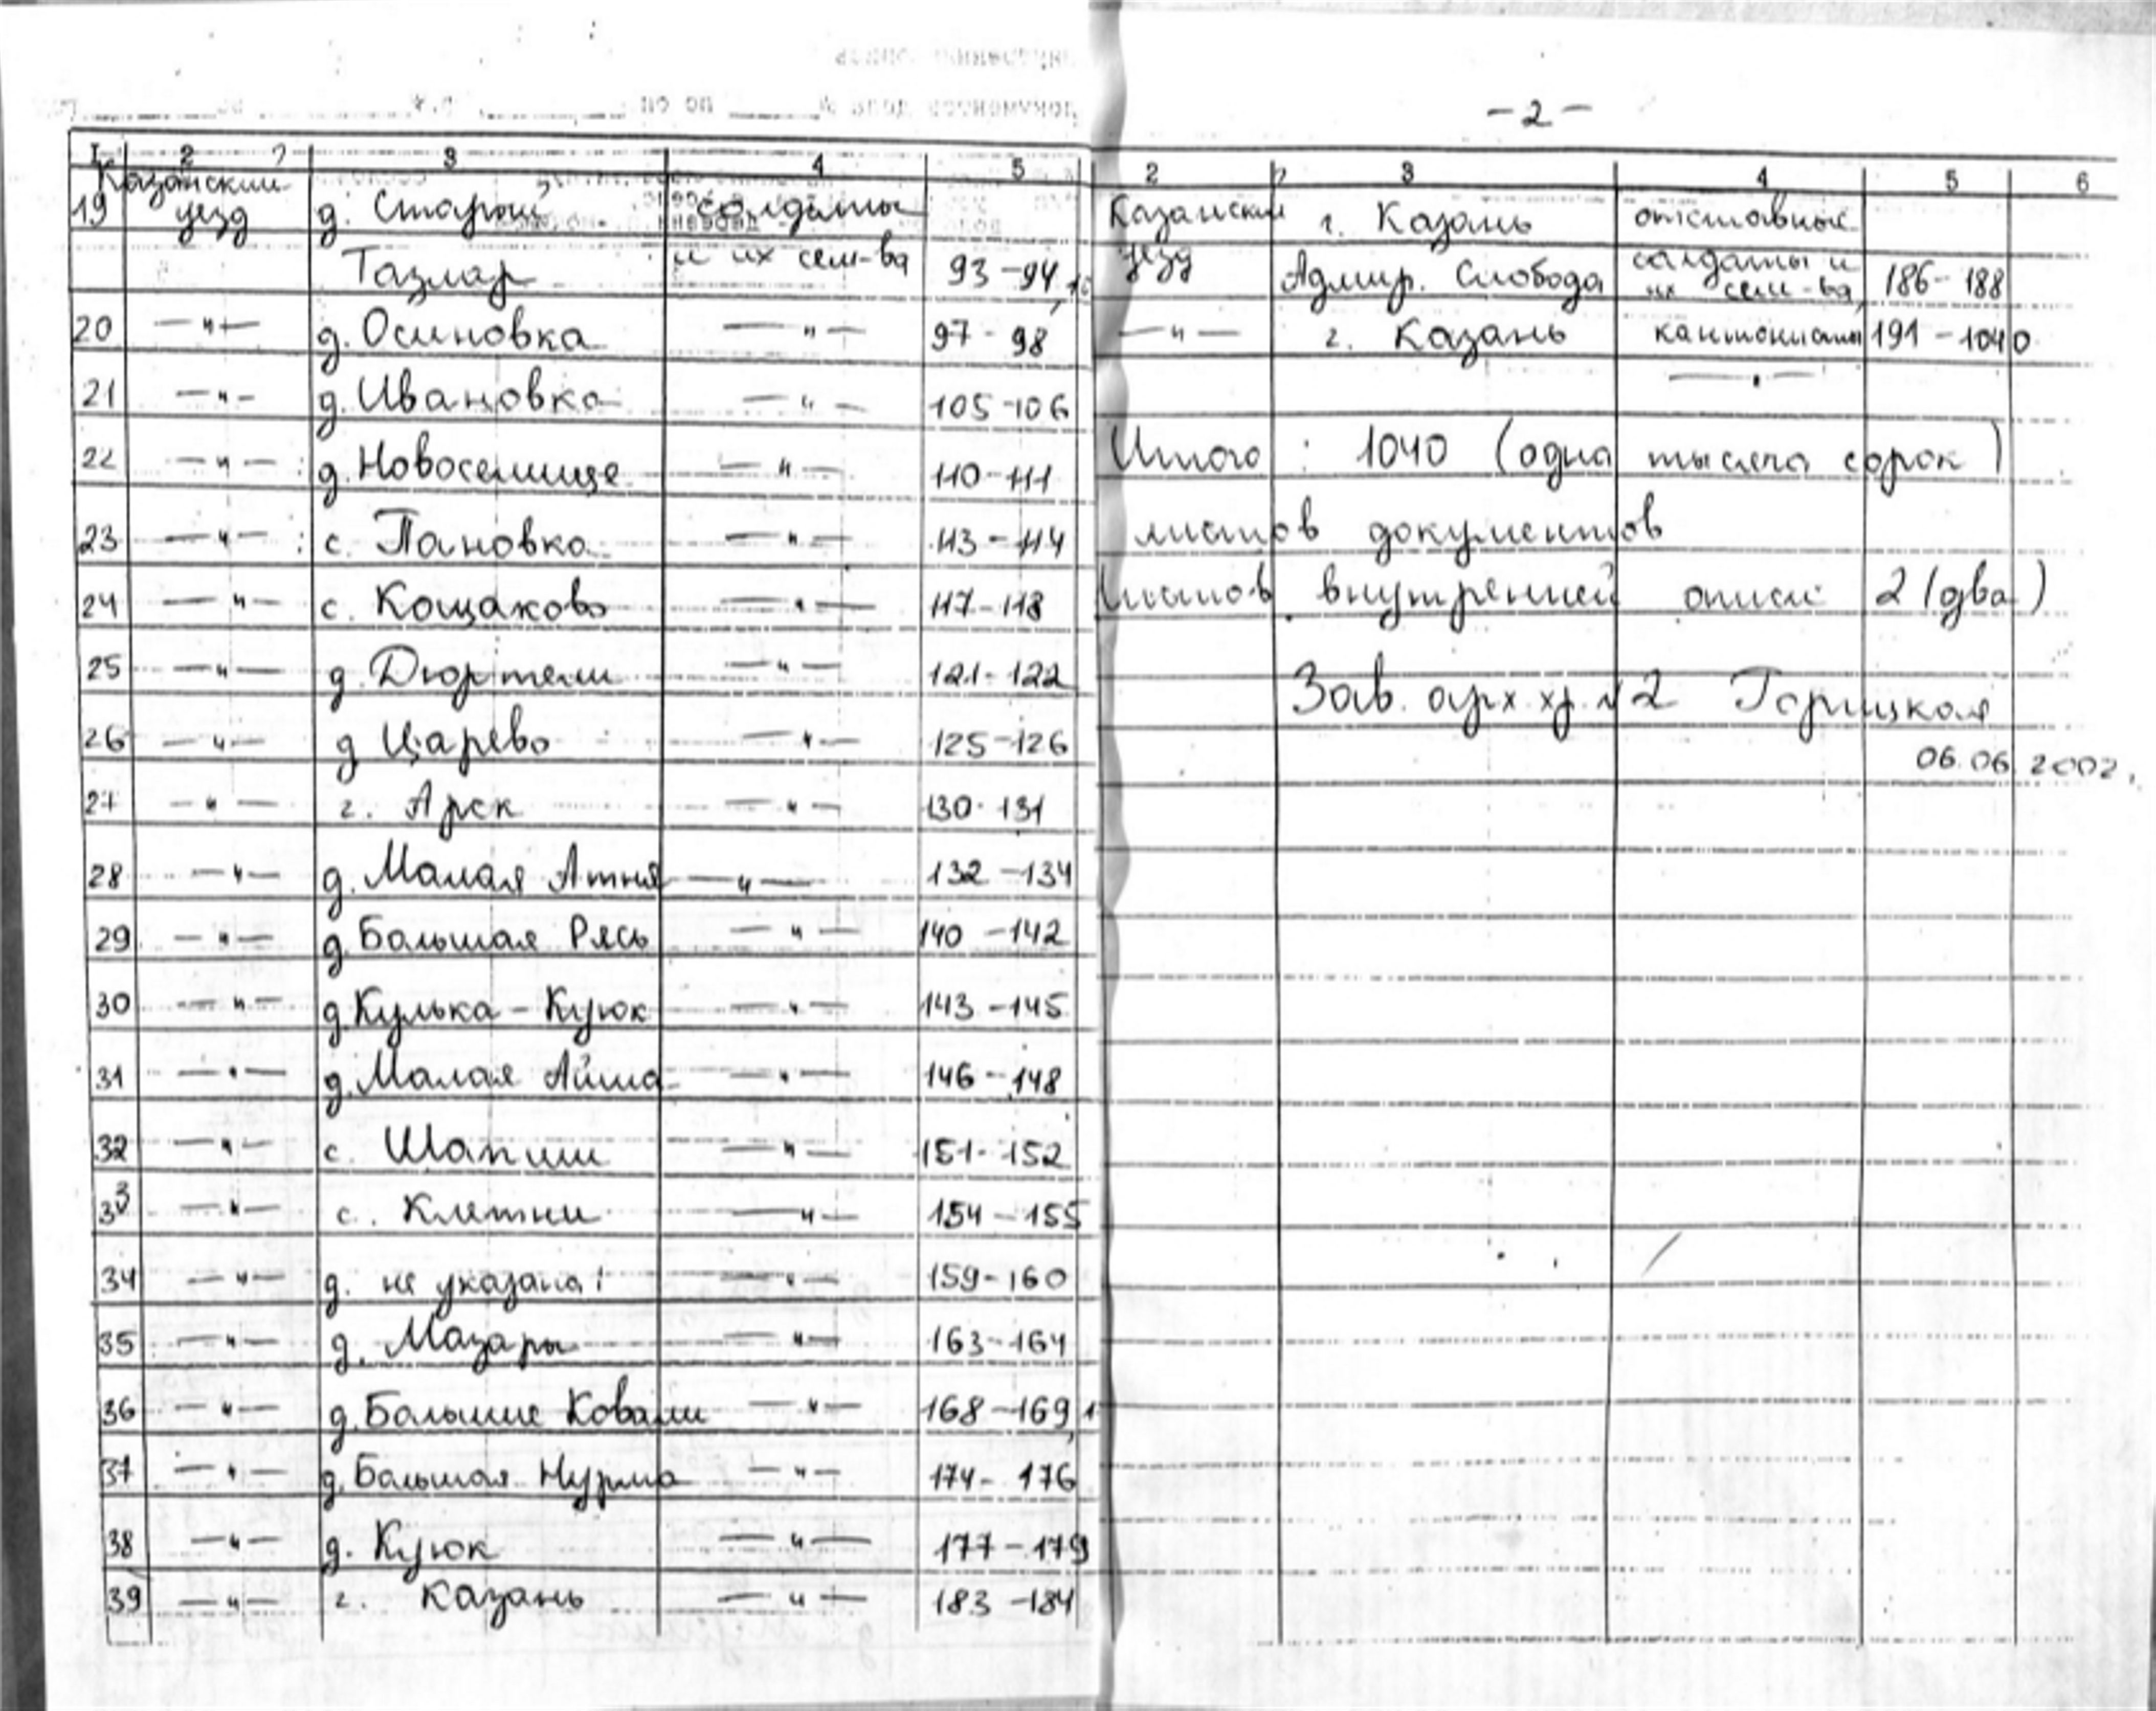 1 2 3 4 5
19 Казанский уезд д. Старый солдаты
Тазлар и их сем-ва 93-94,
20 —"— д. Осиновка —"— 97-98
21 —"— д. Ивановка —"— 105-106
22 —"— д. Новоселище —"— 110-111
23 —"— с. Пановка —"— 113-114
24 —"— с. Кощаково —"— 117-118
25 —"— д. Дюртели —"— 121-122
26 —"— д Царево —"— 125-126
27 —"— г. Арск —"— 130-131
28 —"— д. Малая Атня —"— 132-134
29 —"— д. Большая Рясь —"— 140-142
30 —"— д. Кулька-Куюк —"— 143-145
31 —"— д. Малая Айша —"— 146-148
32 —"— с. Шапши —"— 151-152
33 —"— с. Клетни —"— 154-155
34 —"— д. не указана —"— 159-160
35 —"— д. Мазары —"— 163-164
36 —"— д. Большие Ковали —"— 168-169,
37 —"— д. Большая Нурма —"— 174-176
38 —"— д. Куюк —"— 177-179
39 —"— г. Казань —"— 183-184
-2-
2 3 4 5 6
Казанский г. Казань отставные
уезд Адмир. Слобода солдаты и их сем-ва, 186-188
—"— г. Казань кантонисты 191-1040
—"—
Итого: 1040 (одна тысяча сорок)
листов документов
Листов внутренней описи 2 (два)
Зав. арх хр. №2 Горицкая
06.06 2002.